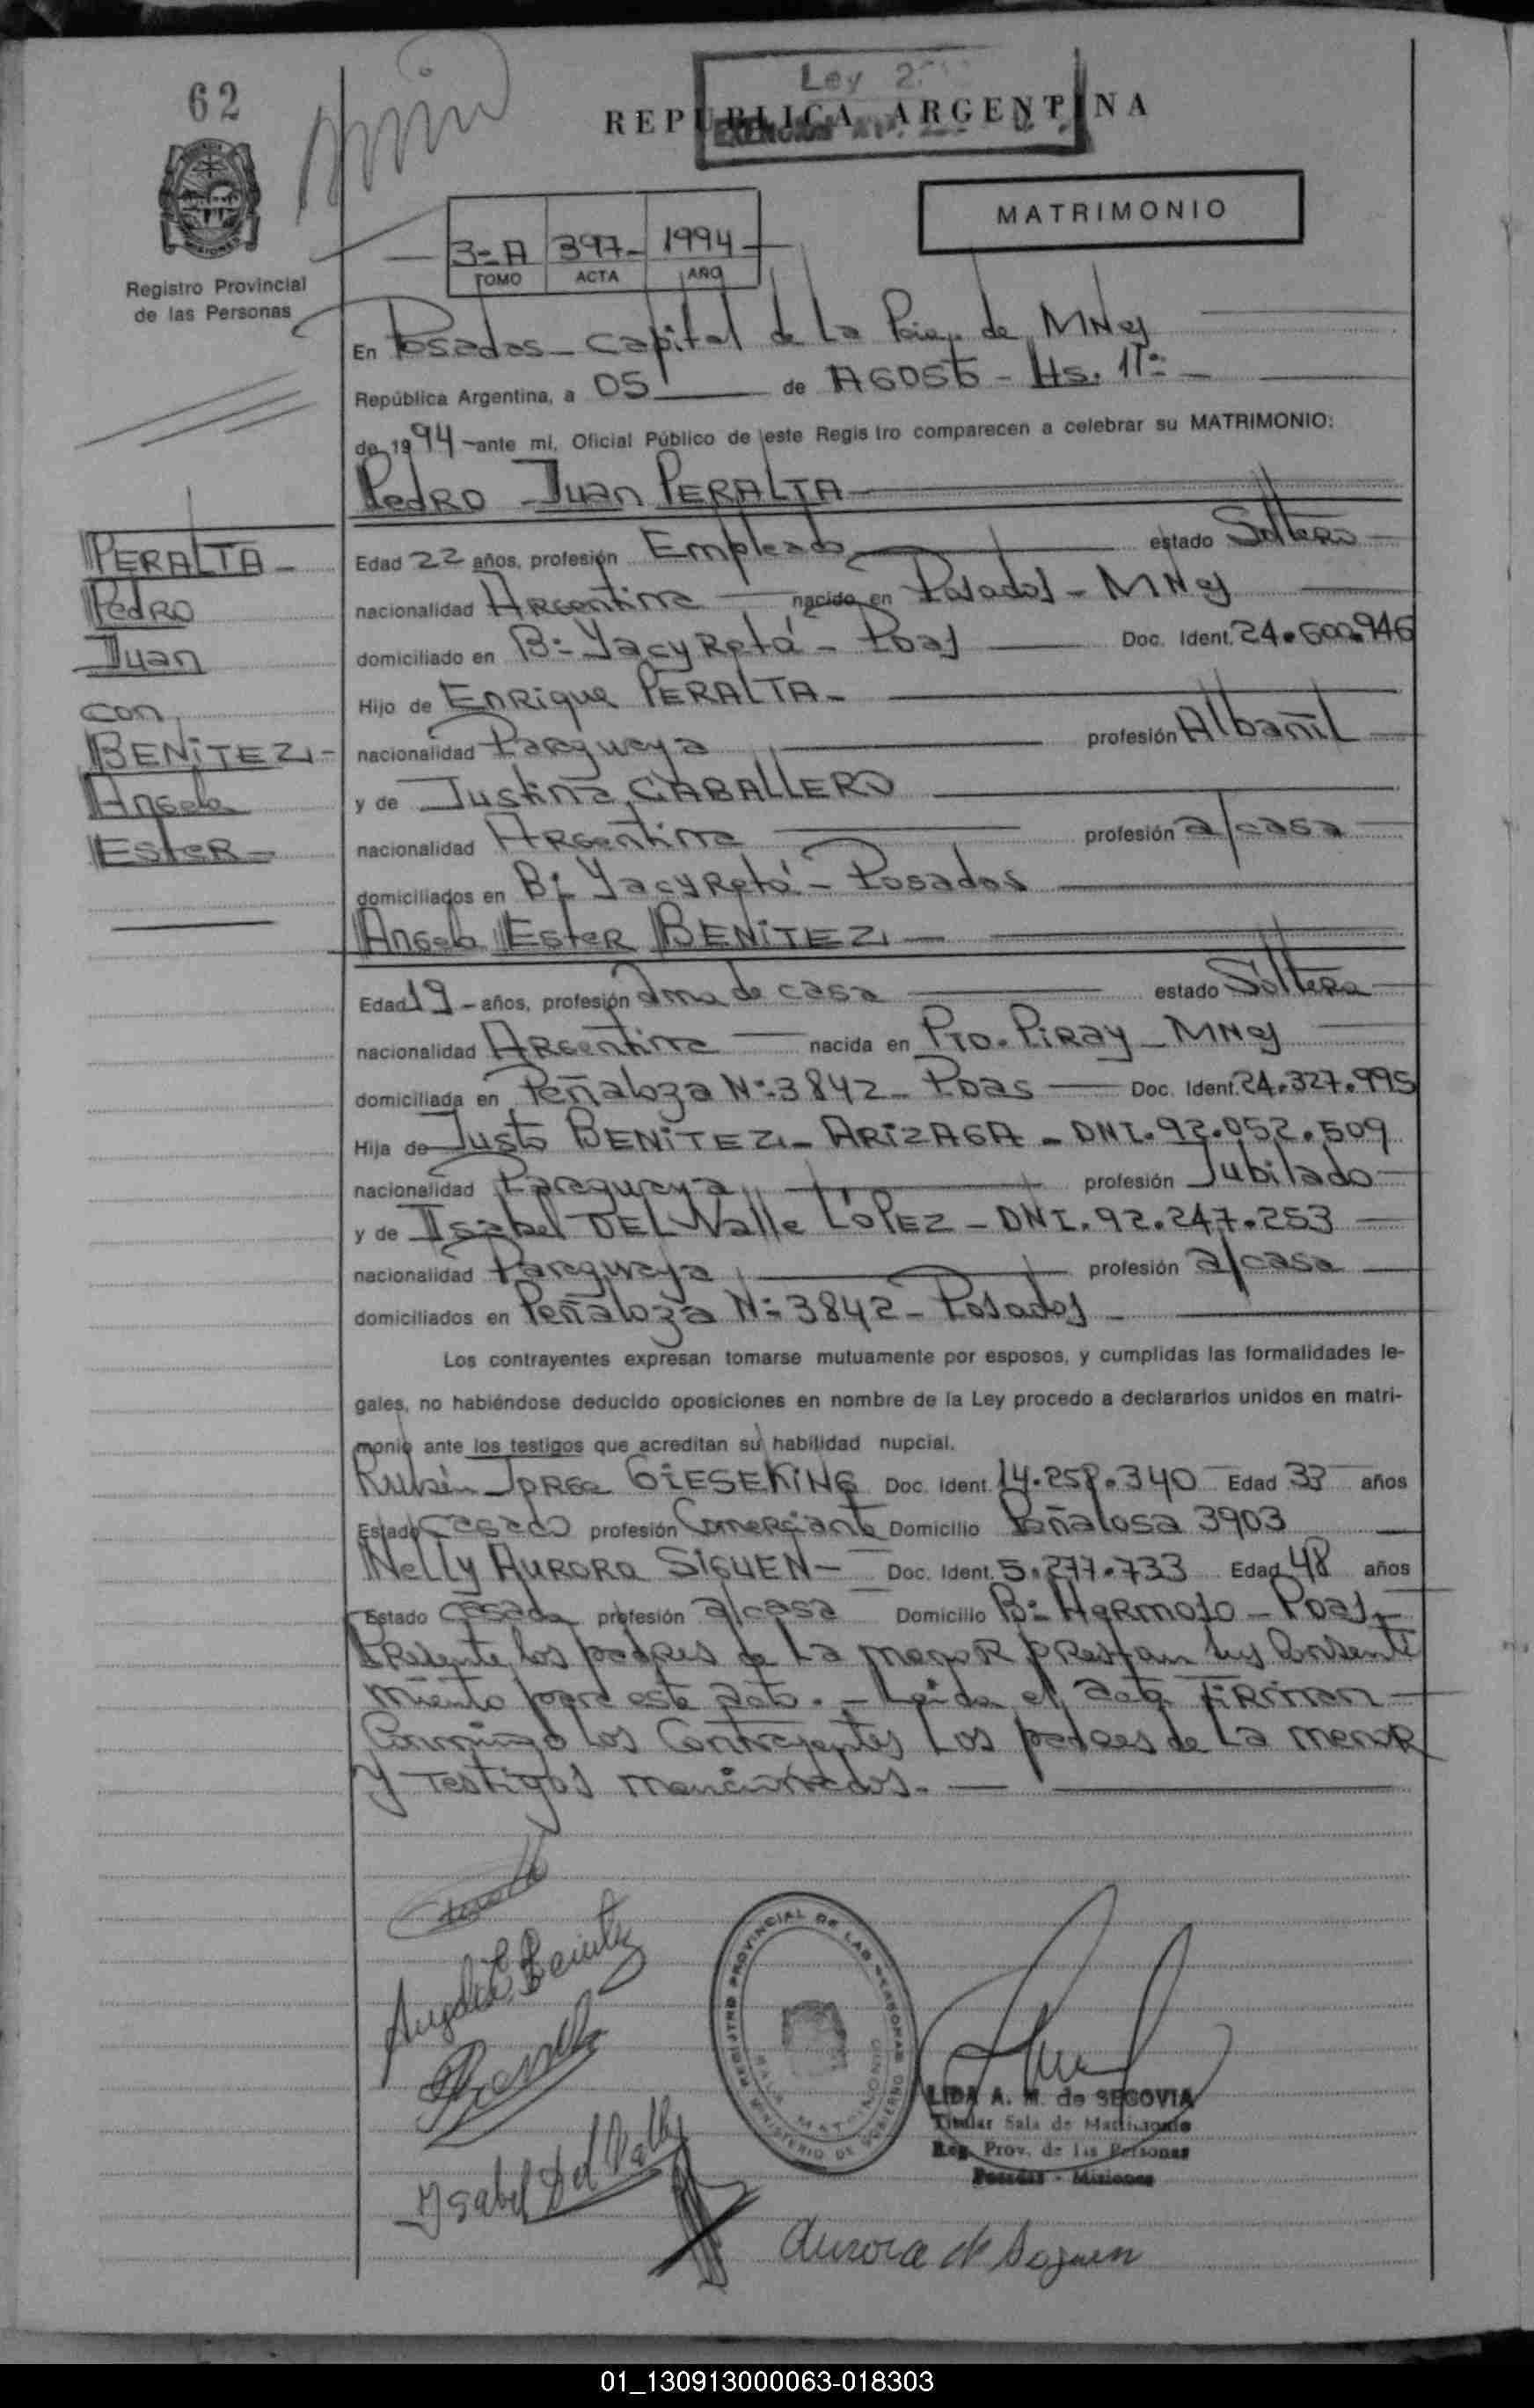 62
Ley 2
REPUBLICA ARGENTINA
MATRIMONIO
3-A 397- 1994
TOMO ACTA AÑO
Registro Provincial
de las Personas
En Posadas - Capital de La Pcia. de MNes
República Argentina, a 05 de AGOSTO - Hs. 11:
de 1994 - ante mí, Oficial Público de este Registro comparecen a celebrar su MATRIMONIO:
Pedro Juan PERALTA
PERALTA -
Pedro
Juan
con
BENITEZ -
Angela
Ester -
Edad 22 años, profesión Empleado estado Soltero
nacionalidad Argentina nacido en Posadas - MNes
domiciliado en B: Yacyretá - Pdas Doc. Ident. 24.600.946
Hijo de Enrique PERALTA -
nacionalidad Paraguaya profesión Albañil
y de Justina CABALLERO
nacionalidad Argentina profesión a/casa
domiciliados en B: Yacyretá - Posadas
Angela Ester BENITEZ -
Edad 19 - años, profesión Ama de casa estado Soltera
nacionalidad Argentina nacida en Pto. Piray - MNes
domiciliada en Peñaloza N: 3842 - Pdas Doc. Ident. 24.327.995
Hija de Justo BENITEZ - ARIZAGA - DNI. 92.052.509
nacionalidad Paraguaya profesión Jubilado
y de Isabel DEL Valle LOPEZ - DNI. 92.247.253
nacionalidad Paraguaya profesión a/casa
domiciliados en Peñaloza N: 3842 - Posadas
Los contrayentes expresan tomarse mutuamente por esposos, y cumplidas las formalidades le-
gales, no habiéndose deducido oposiciones en nombre de la Ley procedo a declararlos unidos en matri-
monio ante los testigos que acreditan su habilidad nupcial.
Rubén Jorge GIESEKING Doc. Ident. 14.258.340 Edad 33 años
Estado Casado profesión Comerciante Domicilio Peñalosa 3903
Nelly Aurora SIGUEN - Doc. Ident. 5.277.733 Edad 48 años
Estado Casada profesión a/casa Domicilio B: Hermoso - Pdas.
Presente los padres de La menor prestan sus Consenti
miento para este acto. - Leida el acta FIRMAN
Conmigo los Contrayentes Los padres de La menor
y Testigos mencionados. -
Angela E. Benitez
Ysabel Del Valle
REGISTRO PROVINCIAL DE LAS PERSONAS
MINISTERIO DE GOBIERNO
SALA MATRIMONIO
LIDA A. M. de SEGOVIA
Titular Sala de Matrimonio
Reg. Prov. de las Personas
Posadas - Misiones
Aurora de Siguen
01_130913000063-018303